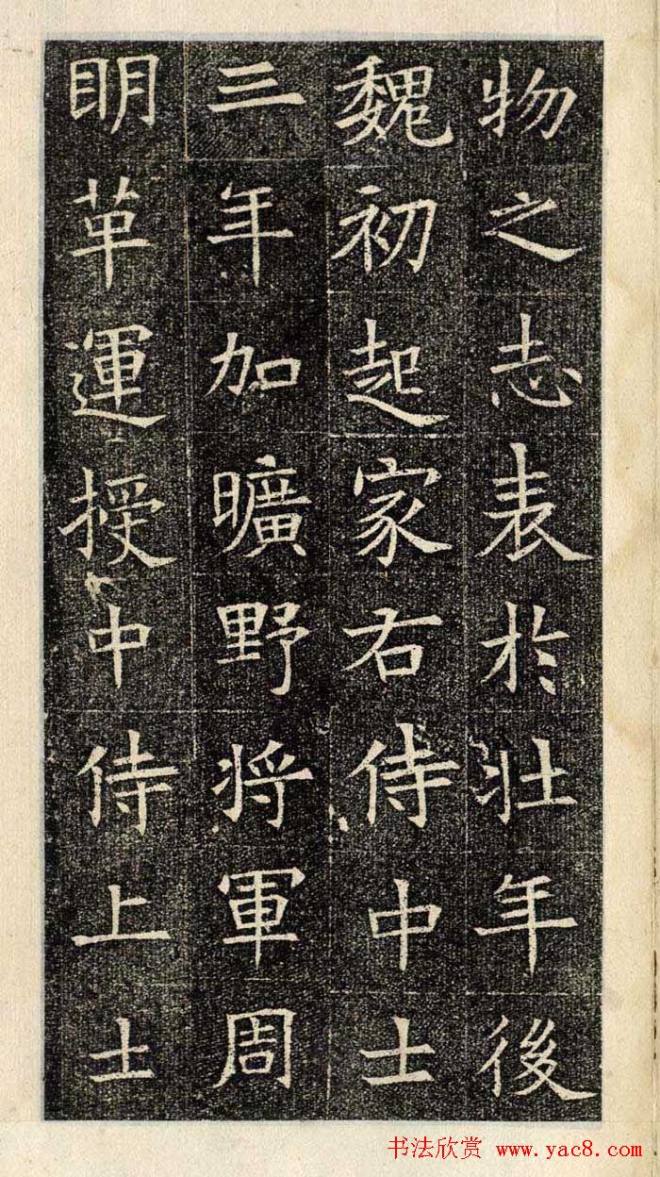 物之志表於壯年後
魏初起家右侍中士
三年加曠野將軍周
明革運授中侍上士
书法欣赏 www.yac8.com